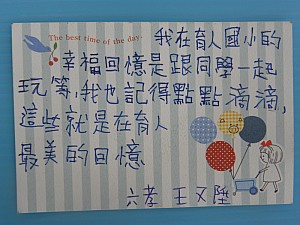 The best time of the day.
我在育人國小的
幸福回憶是跟同學一起
玩等,我也記得點點滴滴,
這些就是在育人
最美的回憶
六孝 王又陞